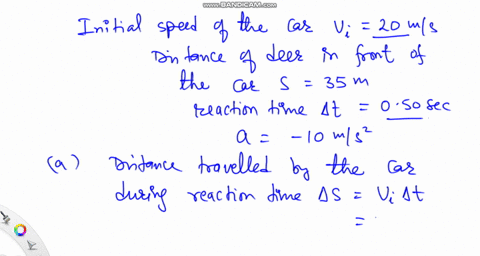 WWW.BANDICAM.COM
Initial speed of the car Vi = 20 m/s
Distance of deer in front of
the car S = 35 m
reaction time Δt = 0.50 sec
a = -10 m/s²
(a) Distance travelled by the car
during reaction time ΔS = Vi Δt
=